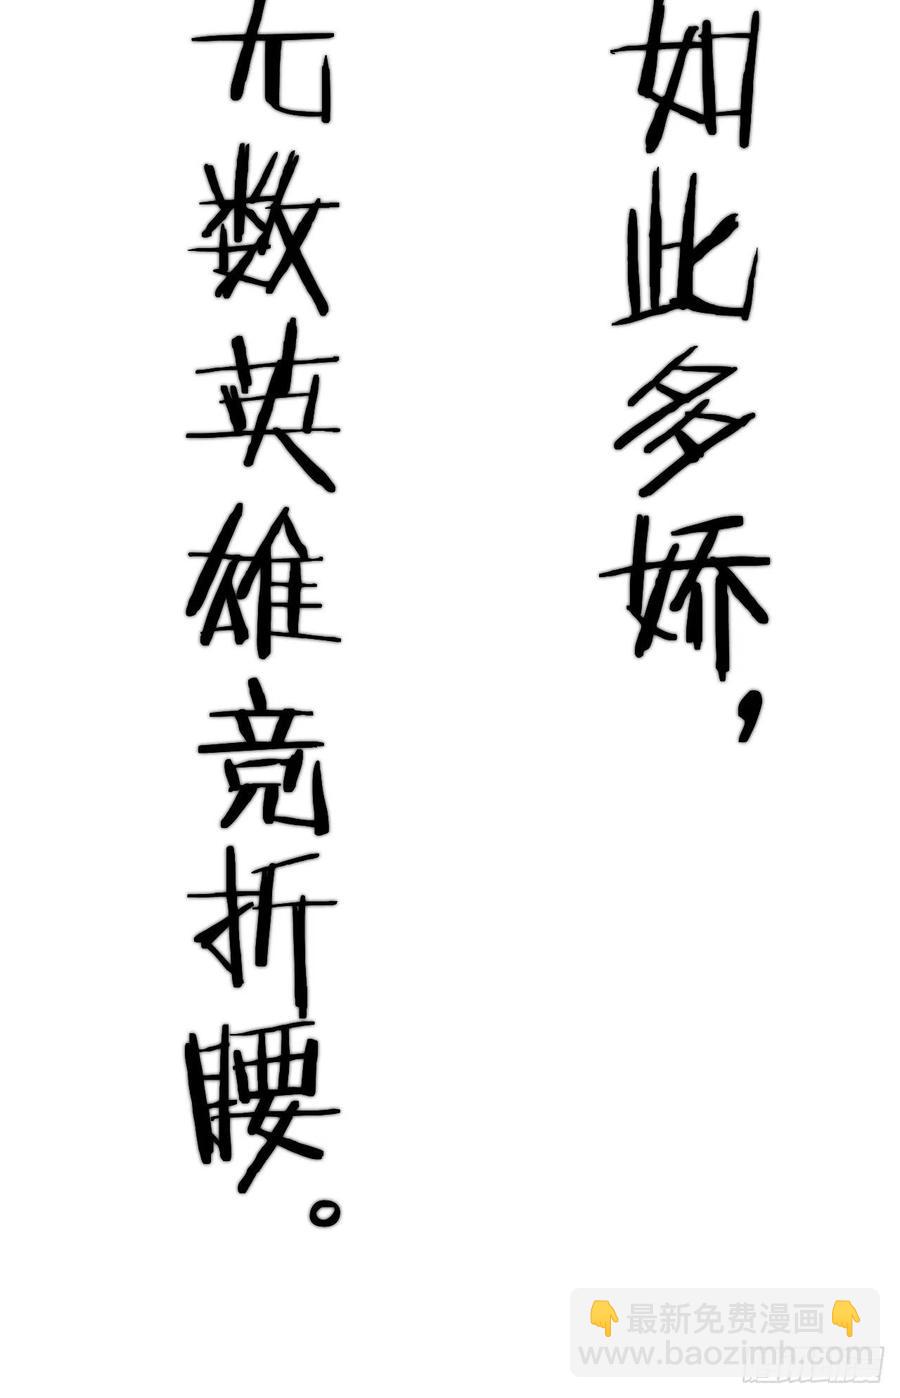 如此多娇，
无数英雄竞折腰。
👇最新免费漫画👇
www.baozimh.com